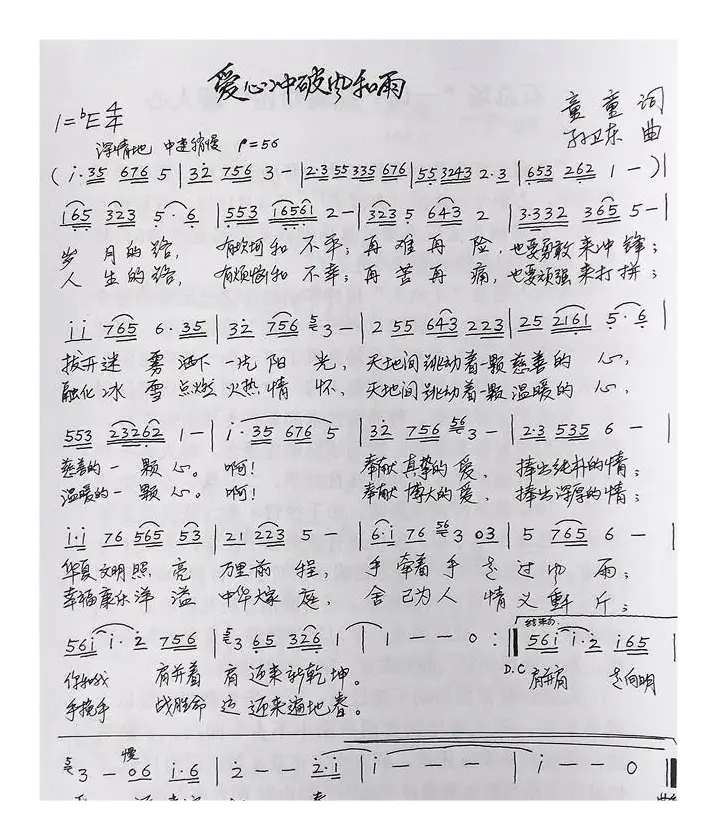 爱心冲破风和雨
1=♭E 4/4
童童 词
孙卫东 曲
深情地 中速稍慢 ♩=56
(i·35 676 5|32 756 3-|2·3 55 335 676|55 3243 2·3|653 262 1-)|
165 323 5·6|553 16561 2-|323 5 643 2|3·332 365 5-|
岁月的路,有坎坷和不平;再难再险,也要勇敢来冲锋;
人生的路,有烦恼和不幸;再苦再痛,也要顽强来打拼;
ii 765 6·35|32 756 5 3-|2 55 643 223|25 2161 5·6|
拨开迷雾洒下一片阳光,天地间跳动着一颗慈善的心,
融化冰雪点燃火热情怀,天地间跳动着一颗温暖的心,
553 23262 1-|i·35 676 5|32 756 56 3-|2·3 535 6-|
慈善的一颗心。啊!奉献真挚的爱、捧出纯朴的情;
温暖的一颗心。啊!奉献博大的爱、捧出深厚的情;
i·i 76 565 53|21 223 5-|6·i 76 56 3 03|5 765 6-|
华夏文明照亮万里前程,手牵着手走过风雨;
幸福康乐洋溢中华大家庭,舍己为人情义重千斤;
56i i·2 756|5 3 65 326 1|1--0:‖结束句56i i·2 i65|
你和我 肩并着肩迎来新乾坤。 D.C 肩并肩 走向明
手挽手 战胜命运迎来遍地春。
5 3-慢06 i·6|2--2·i|i---|i--0‖